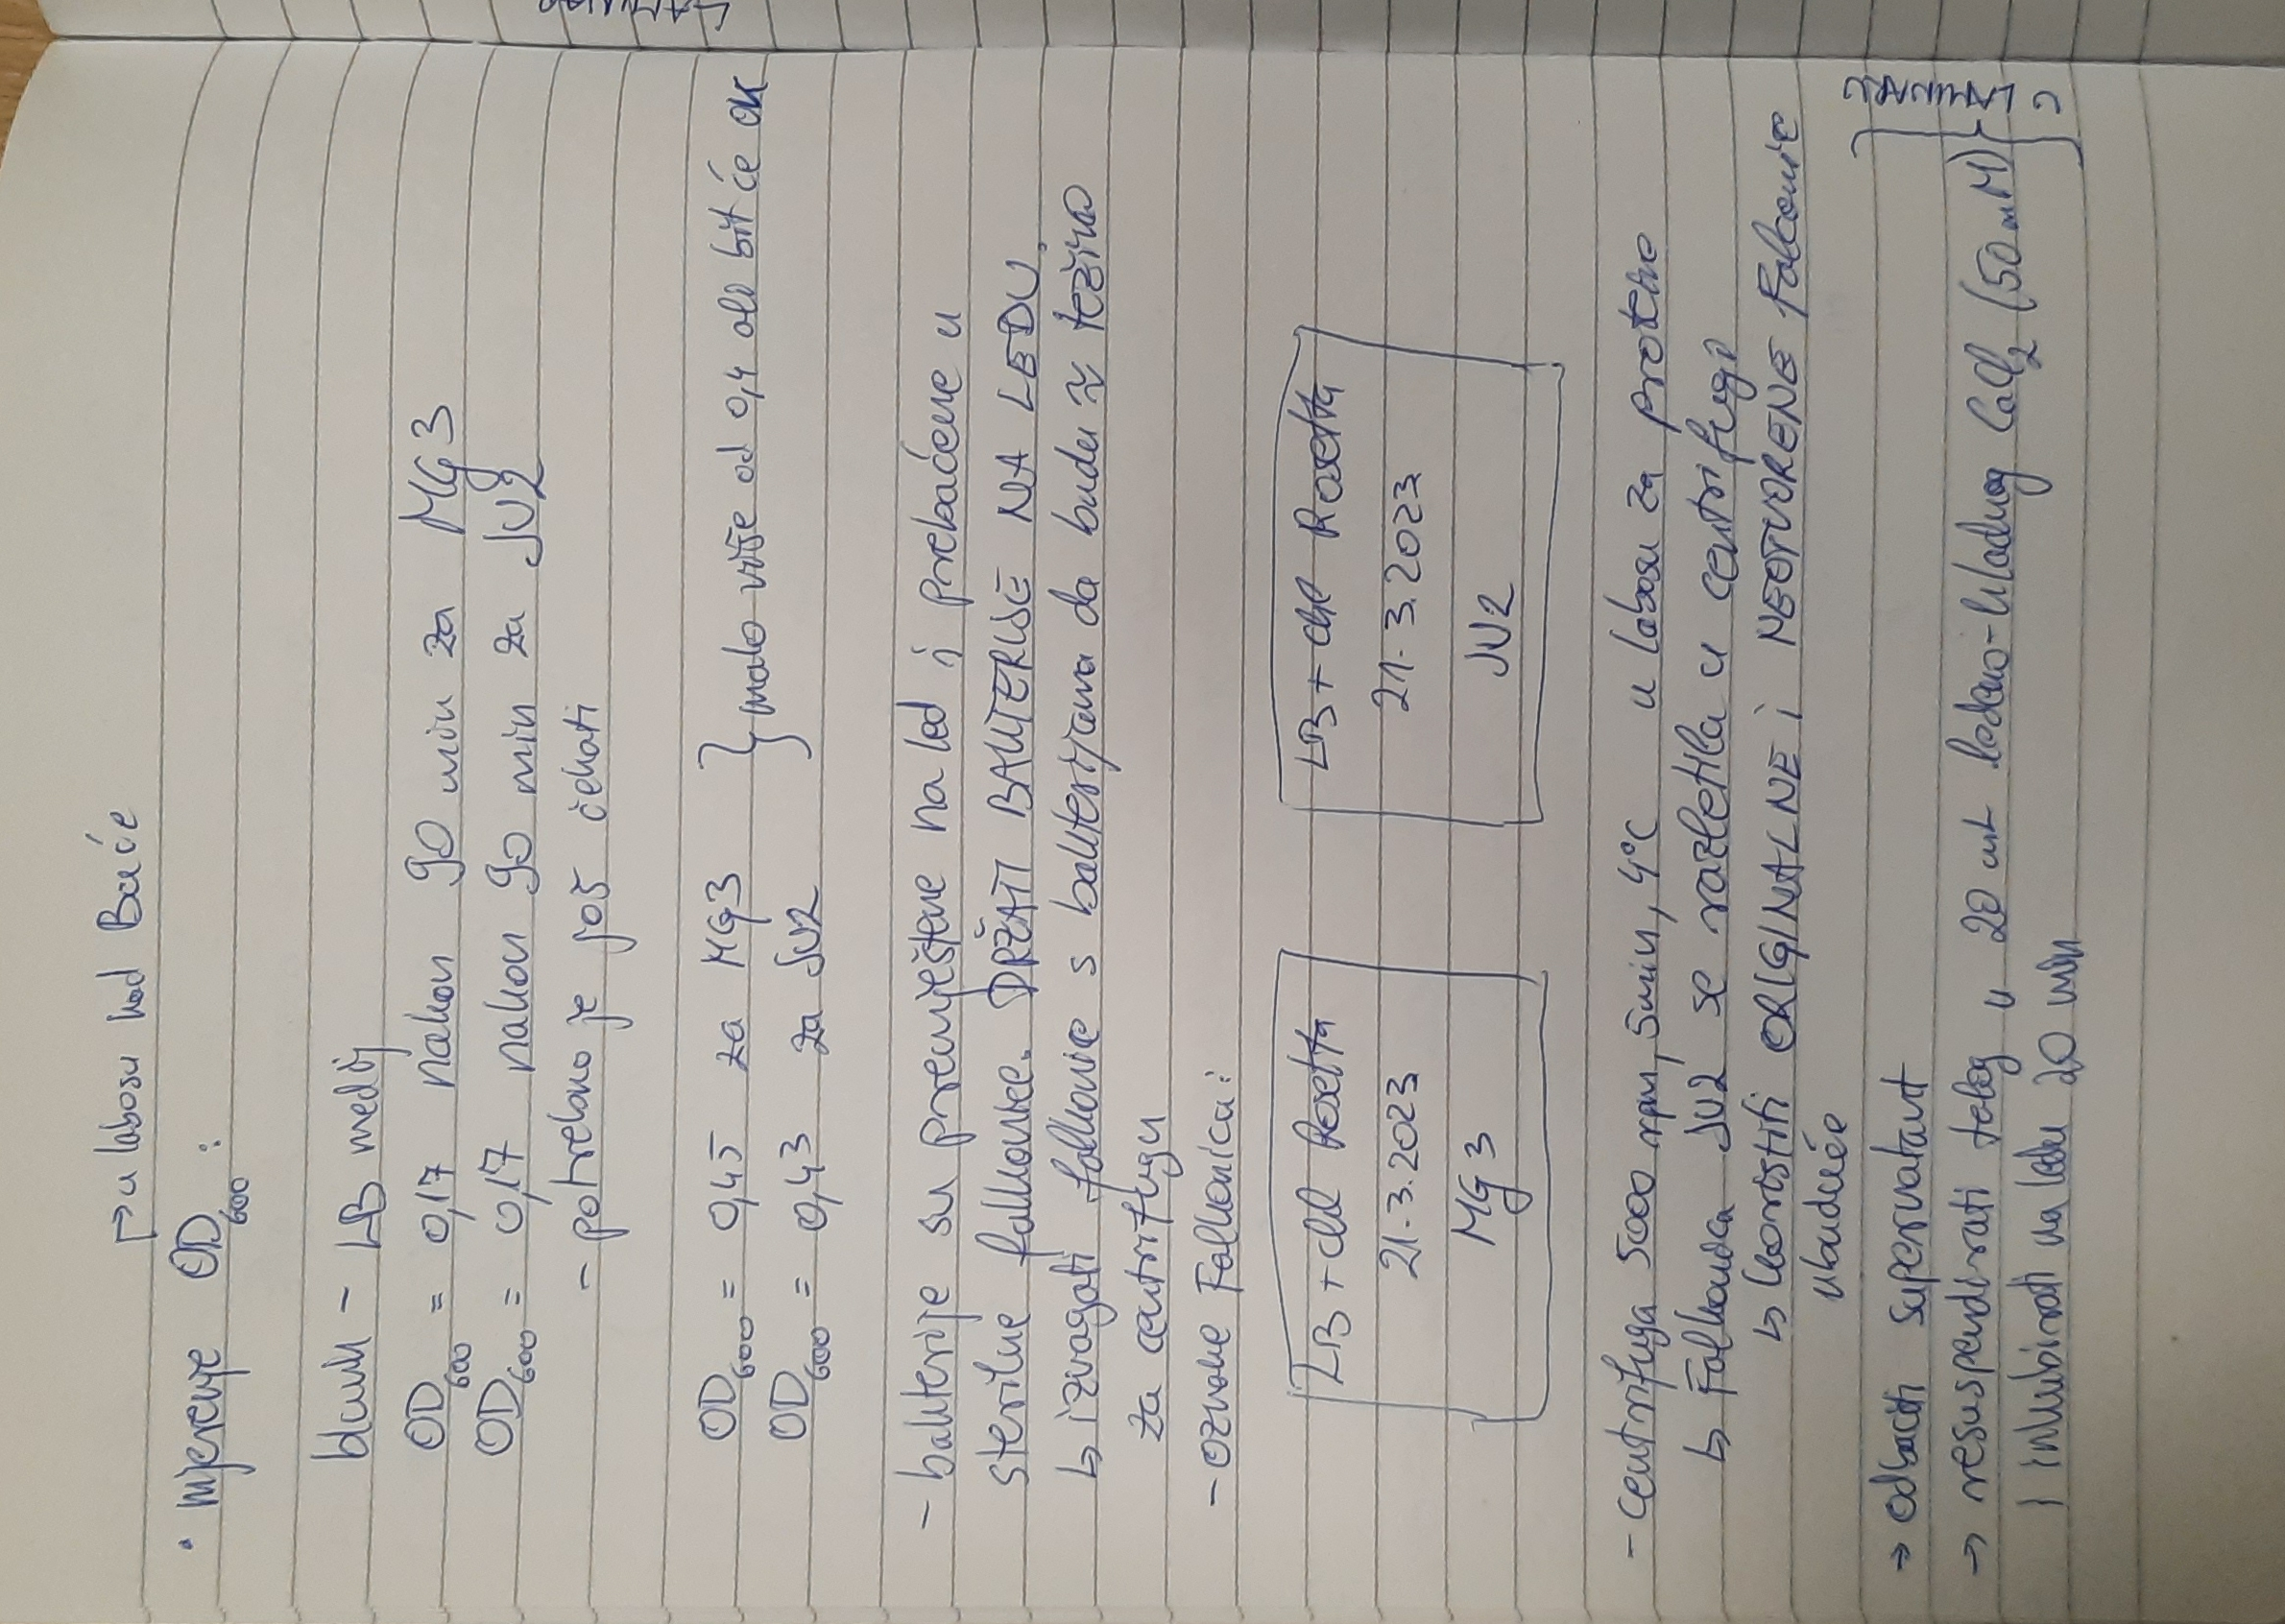 ↱ u labosu kod Baće
• mjerenje OD600 :
blank - LB medij
OD600 = 0,17 nakon 90 min za MG3
OD600 = 0,17 nakon 90 min za JV2
- potrebno je još čekati
OD600 = 0,45 za MG3
OD600 = 0,43 za JV2
} malo više od 0,4 ali bit će OK
- bakterije su premještene na led i prebačene u
sterilne falkonice. DRŽATI BAKTERIJE NA LEDU.
↳ izvagati falkonice s bakterijama da budu ≈ težina
za centrifugu
- oznake Falkonica:
LB + cht Rosetta
21.3.2023
MG3
LB + cht Rosetta
21.3.2023
JV2
- centrifuga 5000 rpm, 5min, 4°C u labosu za proteine
↳ Falkonica JV2 se razletila u centrifugi
↳ koristiti ORIGINALNE i NEOTVORENE falconice
ubuduće
→ odbaciti supernatant
→ resuspendirati talog u 20 mL ledeno-hladnog CaCl2 (50 mM)
i inkubirati na ledu 20 min